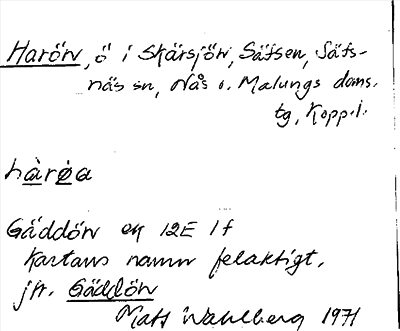 Harön, ö i Skärsjön, Säfsen, Säfs-
näs sn, Nås o. Malungs doms.
tg, Kopp.l.
hàrøa
Gäddön ek 12E 1f
Kartans namn felaktigt,
jfr. Gäddön
Mats Wahlberg 1971